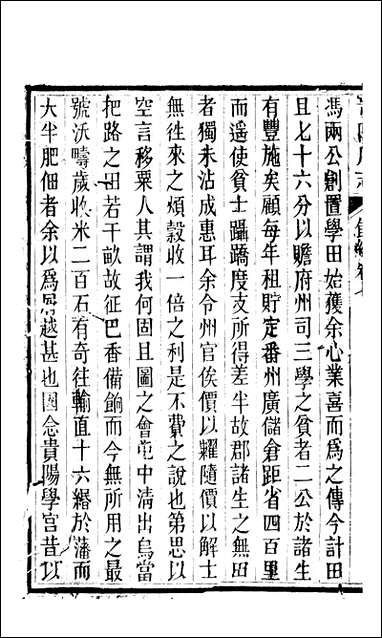 馮兩公創置學田始獲余心業喜而爲之傳今計田
且七十六分以贍府州司三學之貧者二公於諸生
有豐施矣顧每年租貯定番州廣儲倉距省四百里
而遥使貧士躡蹻度支所得差半故郡諸生之無田
者獨未沾成惠耳余令州官俟價以糶隨價以解士
無徃來之煩穀收一倍之利是不費之說也弟思以
空言移粟人其謂我何固且圖之會屯中清出烏當
把路之田若干畝故征巴香備餉而今無所用之最
號沃疇歲收米二百石有奇往輸直十六緡於藩而
大半肥佃者余以爲帑越甚也因念貴陽學宮昔以